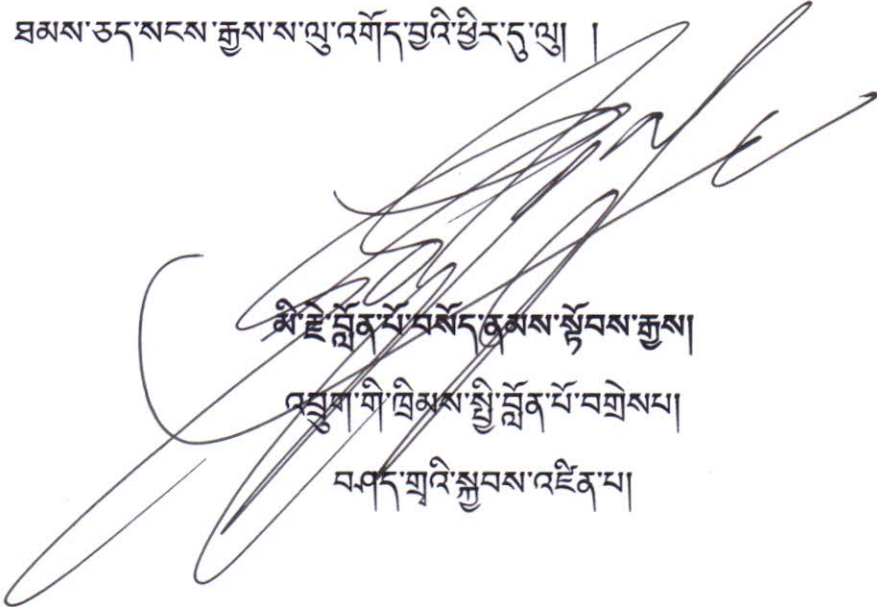 ཐམས་ཅད་སངས་རྒྱས་ས་ལུ་འགོད་བྱའི་ཕྱིར་དུ་ལུ། །
མི་རྗེ་བློན་པོ་བསོད་ནམས་སྟོབས་རྒྱས།
འབྲུག་གི་ཁྲིམས་སྤྱི་བློན་པོ་བགྲེསཔ།
བཤད་གྲྭའི་སྐྱབས་འཛིན་པ།